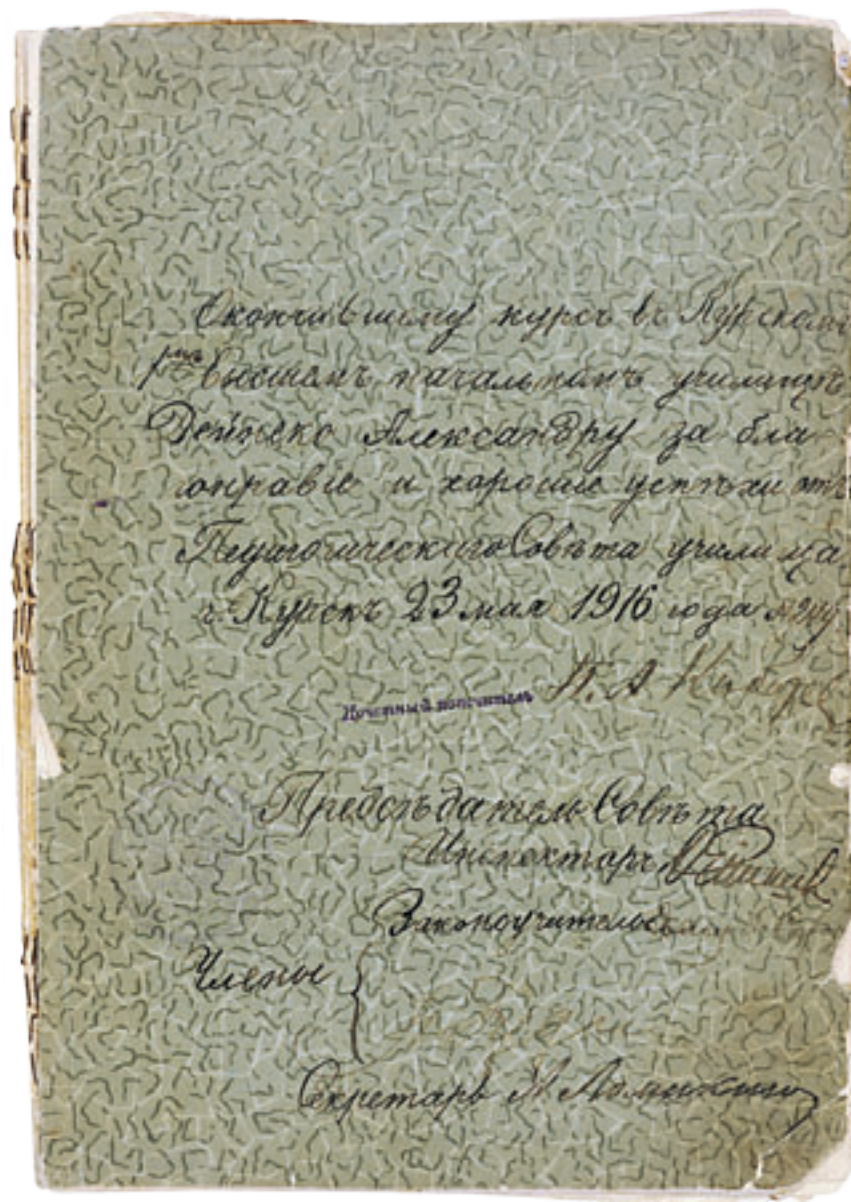 Окончившему курсъ въ Курскомъ
1мъ Высшемъ начальномъ училищѣ
Дейнеко Александру за бла
гонравіе и хорошіе успѣхи отъ
Педагогическаго Совѣта училища
г. Курскъ 23 мая 1916 года
Почетный попечитель П. А.
Предсѣдатель Совѣта
Инспекторъ
Законоучитель
Члены
Секретарь